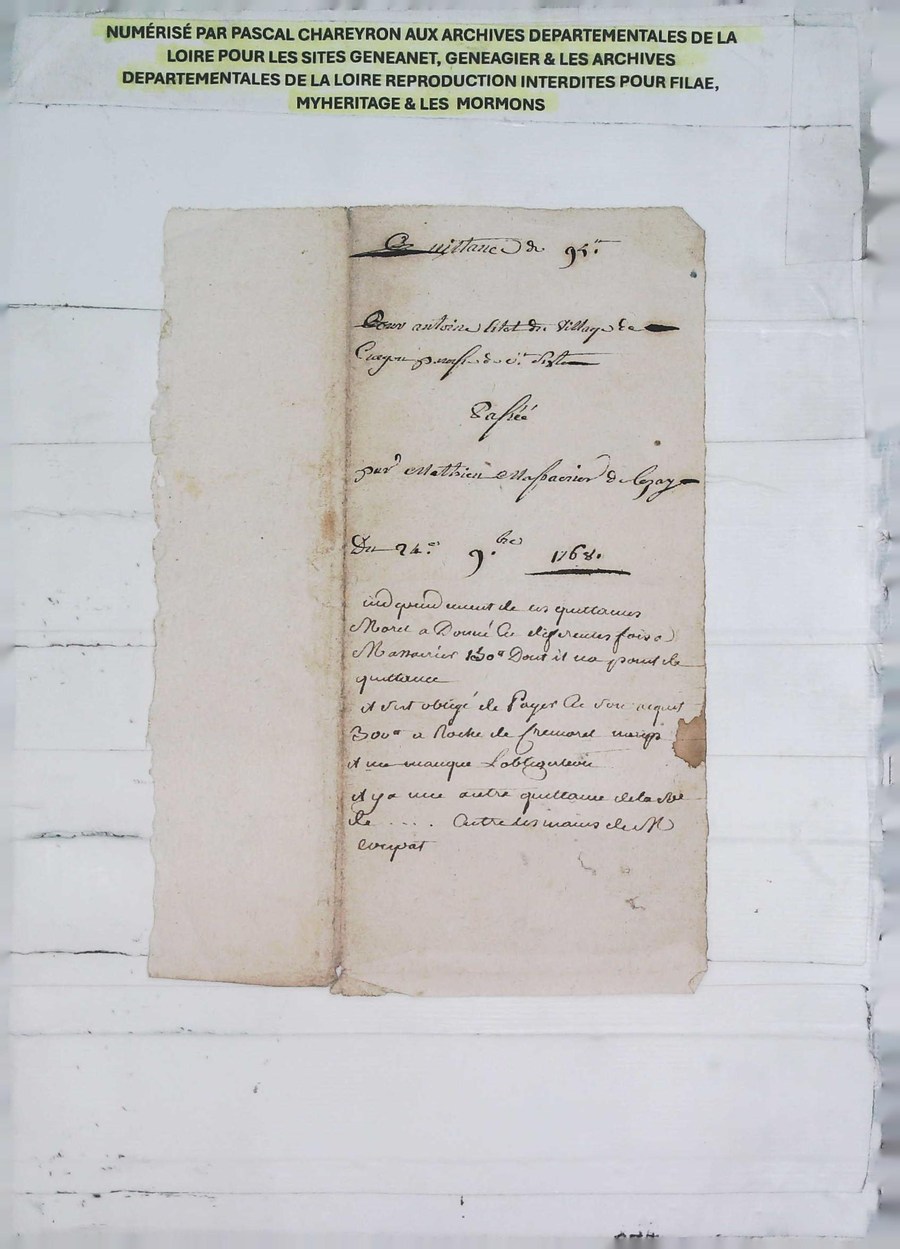 NUMÉRISÉ PAR PASCAL CHAREYRON AUX ARCHIVES DEPARTEMENTALES DE LA
LOIRE POUR LES SITES GENEANET, GENEAGIER & LES ARCHIVES
DEPARTEMENTALES DE LA LOIRE REPRODUCTION INTERDITES POUR FILAE,
MYHERITAGE & LES MORMONS
Quittance de 95ᵗᵗ
Pour antoine du Village de
de Sᵗ Sixte
Passée
par Mathieu Massacrier de
Du 24ᵉ 9.bre 1768.
independement de ces quittances
Morel a Donné En diferentes fois a
Massacrier 130ᵗᵗ Dont il na point de
quittance
il dut obligé de Payer En son
300ᵗᵗ a Roche de Cremarel
il me manque Lobligation
il y a une autre quittance dela
de .... Entre les mains de M
coupat